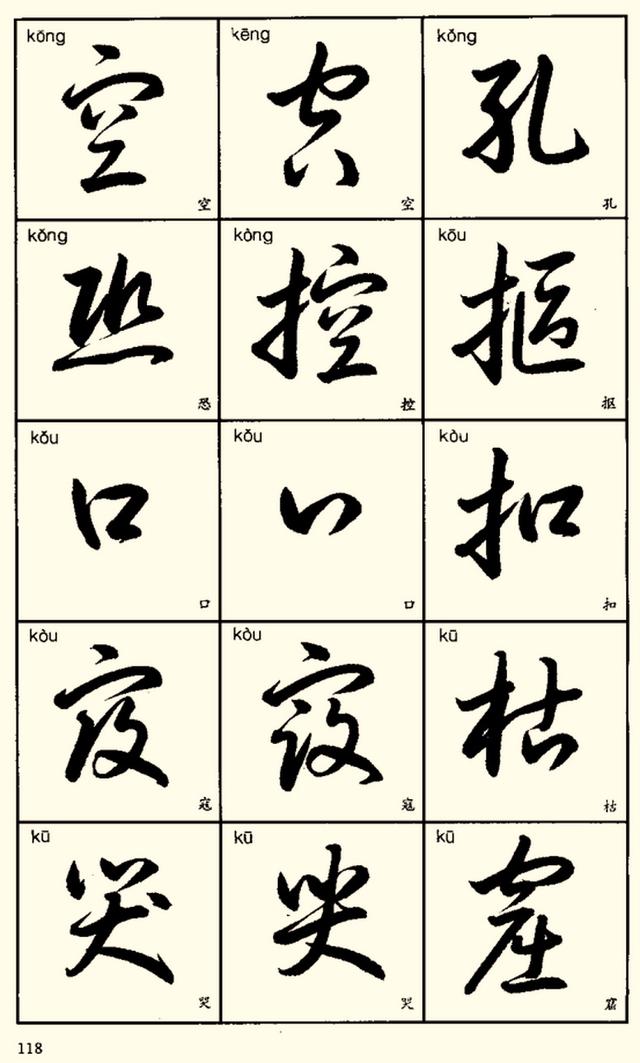 kǒng kēng kǒng
空 空 孔
空 空 孔
kǒng kòng kōu
恐 控 抠
恐 控 抠
kǒu kǒu kòu
口 口 扣
口 口 扣
kòu kòu kū
寇 寇 枯
寇 寇 枯
kū kū kū
哭 哭 窟
哭 哭 窟
118